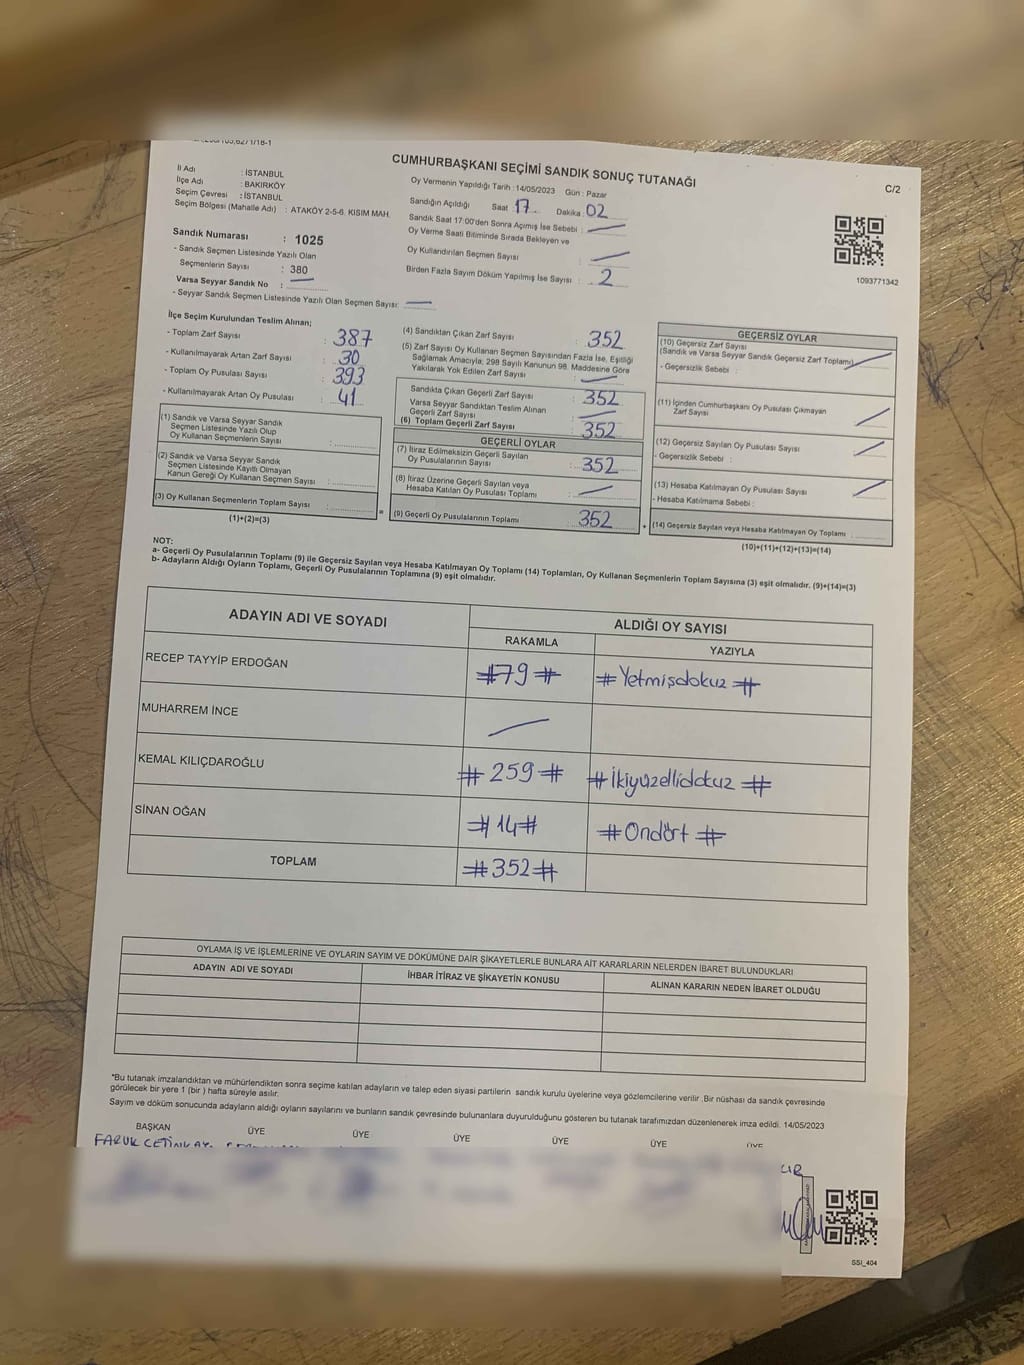 CUMHURBAŞKANI SEÇİMİ SANDIK SONUÇ TUTANAĞI
C/2
İl Adı : İSTANBUL
İlçe Adı : BAKIRKÖY
Seçim Çevresi : İSTANBUL
Seçim Bölgesi (Mahalle Adı) : ATAKÖY 2-5-6. KISIM MAH.
Oy Vermenin Yapıldığı Tarih : 14/05/2023 Gün : Pazar
Sandığın Açıldığı Saat 17 Dakika : 02
Sandık Saat 17:00'den Sonra Açılmış İse Sebebi :
Oy Verme Saati Bitiminde Sırada Bekleyen ve
Oy Kullandırılan Seçmen Sayısı :
Birden Fazla Sayım Döküm Yapılmış İse Sayısı : 2
1093771342
Sandık Numarası : 1025
- Sandık Seçmen Listesinde Yazılı Olan
Seçmenlerin Sayısı : 380
Varsa Seyyar Sandık No :
- Seyyar Sandık Seçmen Listesinde Yazılı Olan Seçmen Sayısı:
İlçe Seçim Kurulundan Teslim Alınan;
- Toplam Zarf Sayısı : 387
- Kullanılmayarak Artan Zarf Sayısı : 30
- Toplam Oy Pusulası Sayısı : 393
- Kullanılmayarak Artan Oy Pusulası : 41
(1) Sandık ve Varsa Seyyar Sandık
Seçmen Listesinde Yazılı Olup
Oy Kullanan Seçmenlerin Sayısı :
(2) Sandık ve Varsa Seyyar Sandık
Seçmen Listesinde Kayıtlı Olmayan
Kanun Gereği Oy Kullanan Seçmen Sayısı :
(3) Oy Kullanan Seçmenlerin Toplam Sayısı :
(1)+(2)=(3)
=
(4) Sandıktan Çıkan Zarf Sayısı : 352
(5) Zarf Sayısı Oy Kullanan Seçmen Sayısından Fazla İse, Eşitliği
Sağlamak Amacıyla, 298 Sayılı Kanunun 98. Maddesine Göre
Yakılarak Yok Edilen Zarf Sayısı :
Sandıkta Çıkan Geçerli Zarf Sayısı : 352
Varsa Seyyar Sandıktan Teslim Alınan
Geçerli Zarf Sayısı :
(6) Toplam Geçerli Zarf Sayısı : 352
GEÇERLİ OYLAR
(7) İtiraz Edilmeksizin Geçerli Sayılan
Oy Pusulalarının Sayısı : 352
(8) İtiraz Üzerine Geçerli Sayılan veya
Hesaba Katılan Oy Pusulası Toplamı :
(9) Geçerli Oy Pusulalarının Toplamı : 352
+
GEÇERSİZ OYLAR
(10) Geçersiz Zarf Sayısı
(Sandık ve Varsa Seyyar Sandık Geçersiz Zarf Toplamı)
- Geçersizlik Sebebi :
(11) İçinden Cumhurbaşkanı Oy Pusulası Çıkmayan
Zarf Sayısı
(12) Geçersiz Sayılan Oy Pusulası Sayısı
- Geçersizlik Sebebi :
(13) Hesaba Katılmayan Oy Pusulası Sayısı
- Hesaba Katılmama Sebebi :
(14) Geçersiz Sayılan veya Hesaba Katılmayan Oy Toplamı :
(10)+(11)+(12)+(13)=(14)
NOT:
a- Geçerli Oy Pusulalarının Toplamı (9) ile Geçersiz Sayılan veya Hesaba Katılmayan Oy Toplamı (14) Toplamları, Oy Kullanan Seçmenlerin Toplam Sayısına (3) eşit olmalıdır. (9)+(14)=(3)
b- Adayların Aldığı Oyların Toplamı, Geçerli Oy Pusulalarının Toplamına (9) eşit olmalıdır.
ADAYIN ADI VE SOYADI
ALDIĞI OY SAYISI
RAKAMLA YAZIYLA
RECEP TAYYİP ERDOĞAN #79# #Yetmişdokuz#
MUHARREM İNCE
KEMAL KILIÇDAROĞLU #259# #İkiyüzellidokuz#
SİNAN OĞAN #14# #Ondört#
TOPLAM #352#
OYLAMA İŞ VE İŞLEMLERİNE VE OYLARIN SAYIM VE DÖKÜMÜNE DAİR ŞİKAYETLERLE BUNLARA AİT KARARLARIN NELERDEN İBARET BULUNDUKLARI
ADAYIN ADI VE SOYADI İHBAR İTİRAZ VE ŞİKAYETİN KONUSU ALINAN KARARIN NEDEN İBARET OLDUĞU
*Bu tutanak imzalandıktan ve mühürlendikten sonra seçime katılan adayların ve talep eden siyasi partilerin sandık kurulu üyelerine veya gözlemcilerine verilir .Bir nüshası da sandık çevresinde
görülecek bir yere 1 (bir ) hafta süreyle asılır.
Sayım ve döküm sonucunda adayların aldığı oyların sayılarını ve bunların sandık çevresinde bulunanlara duyurulduğunu gösteren bu tutanak tarafımızdan düzenlenerek imza edildi. 14/05/2023
BAŞKAN ÜYE ÜYE ÜYE ÜYE ÜYE ÜYE
FARUK ÇETİNKAY
SSI_404